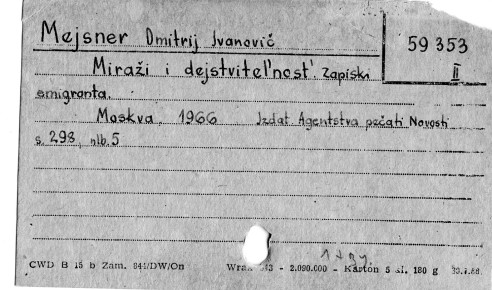 Mejsner Dmitrij Ivanovič
59 353
II
Miraži i dejstvitel'nost'. Zapiski
emigranta.
Moskva, 1966 Izdat Agentstva pečati Novosti
s. 298, nlb. 5
CWD B 15 b Zam. 841/DW/On - 2.090.000 - Karton 5 kl. 180 g